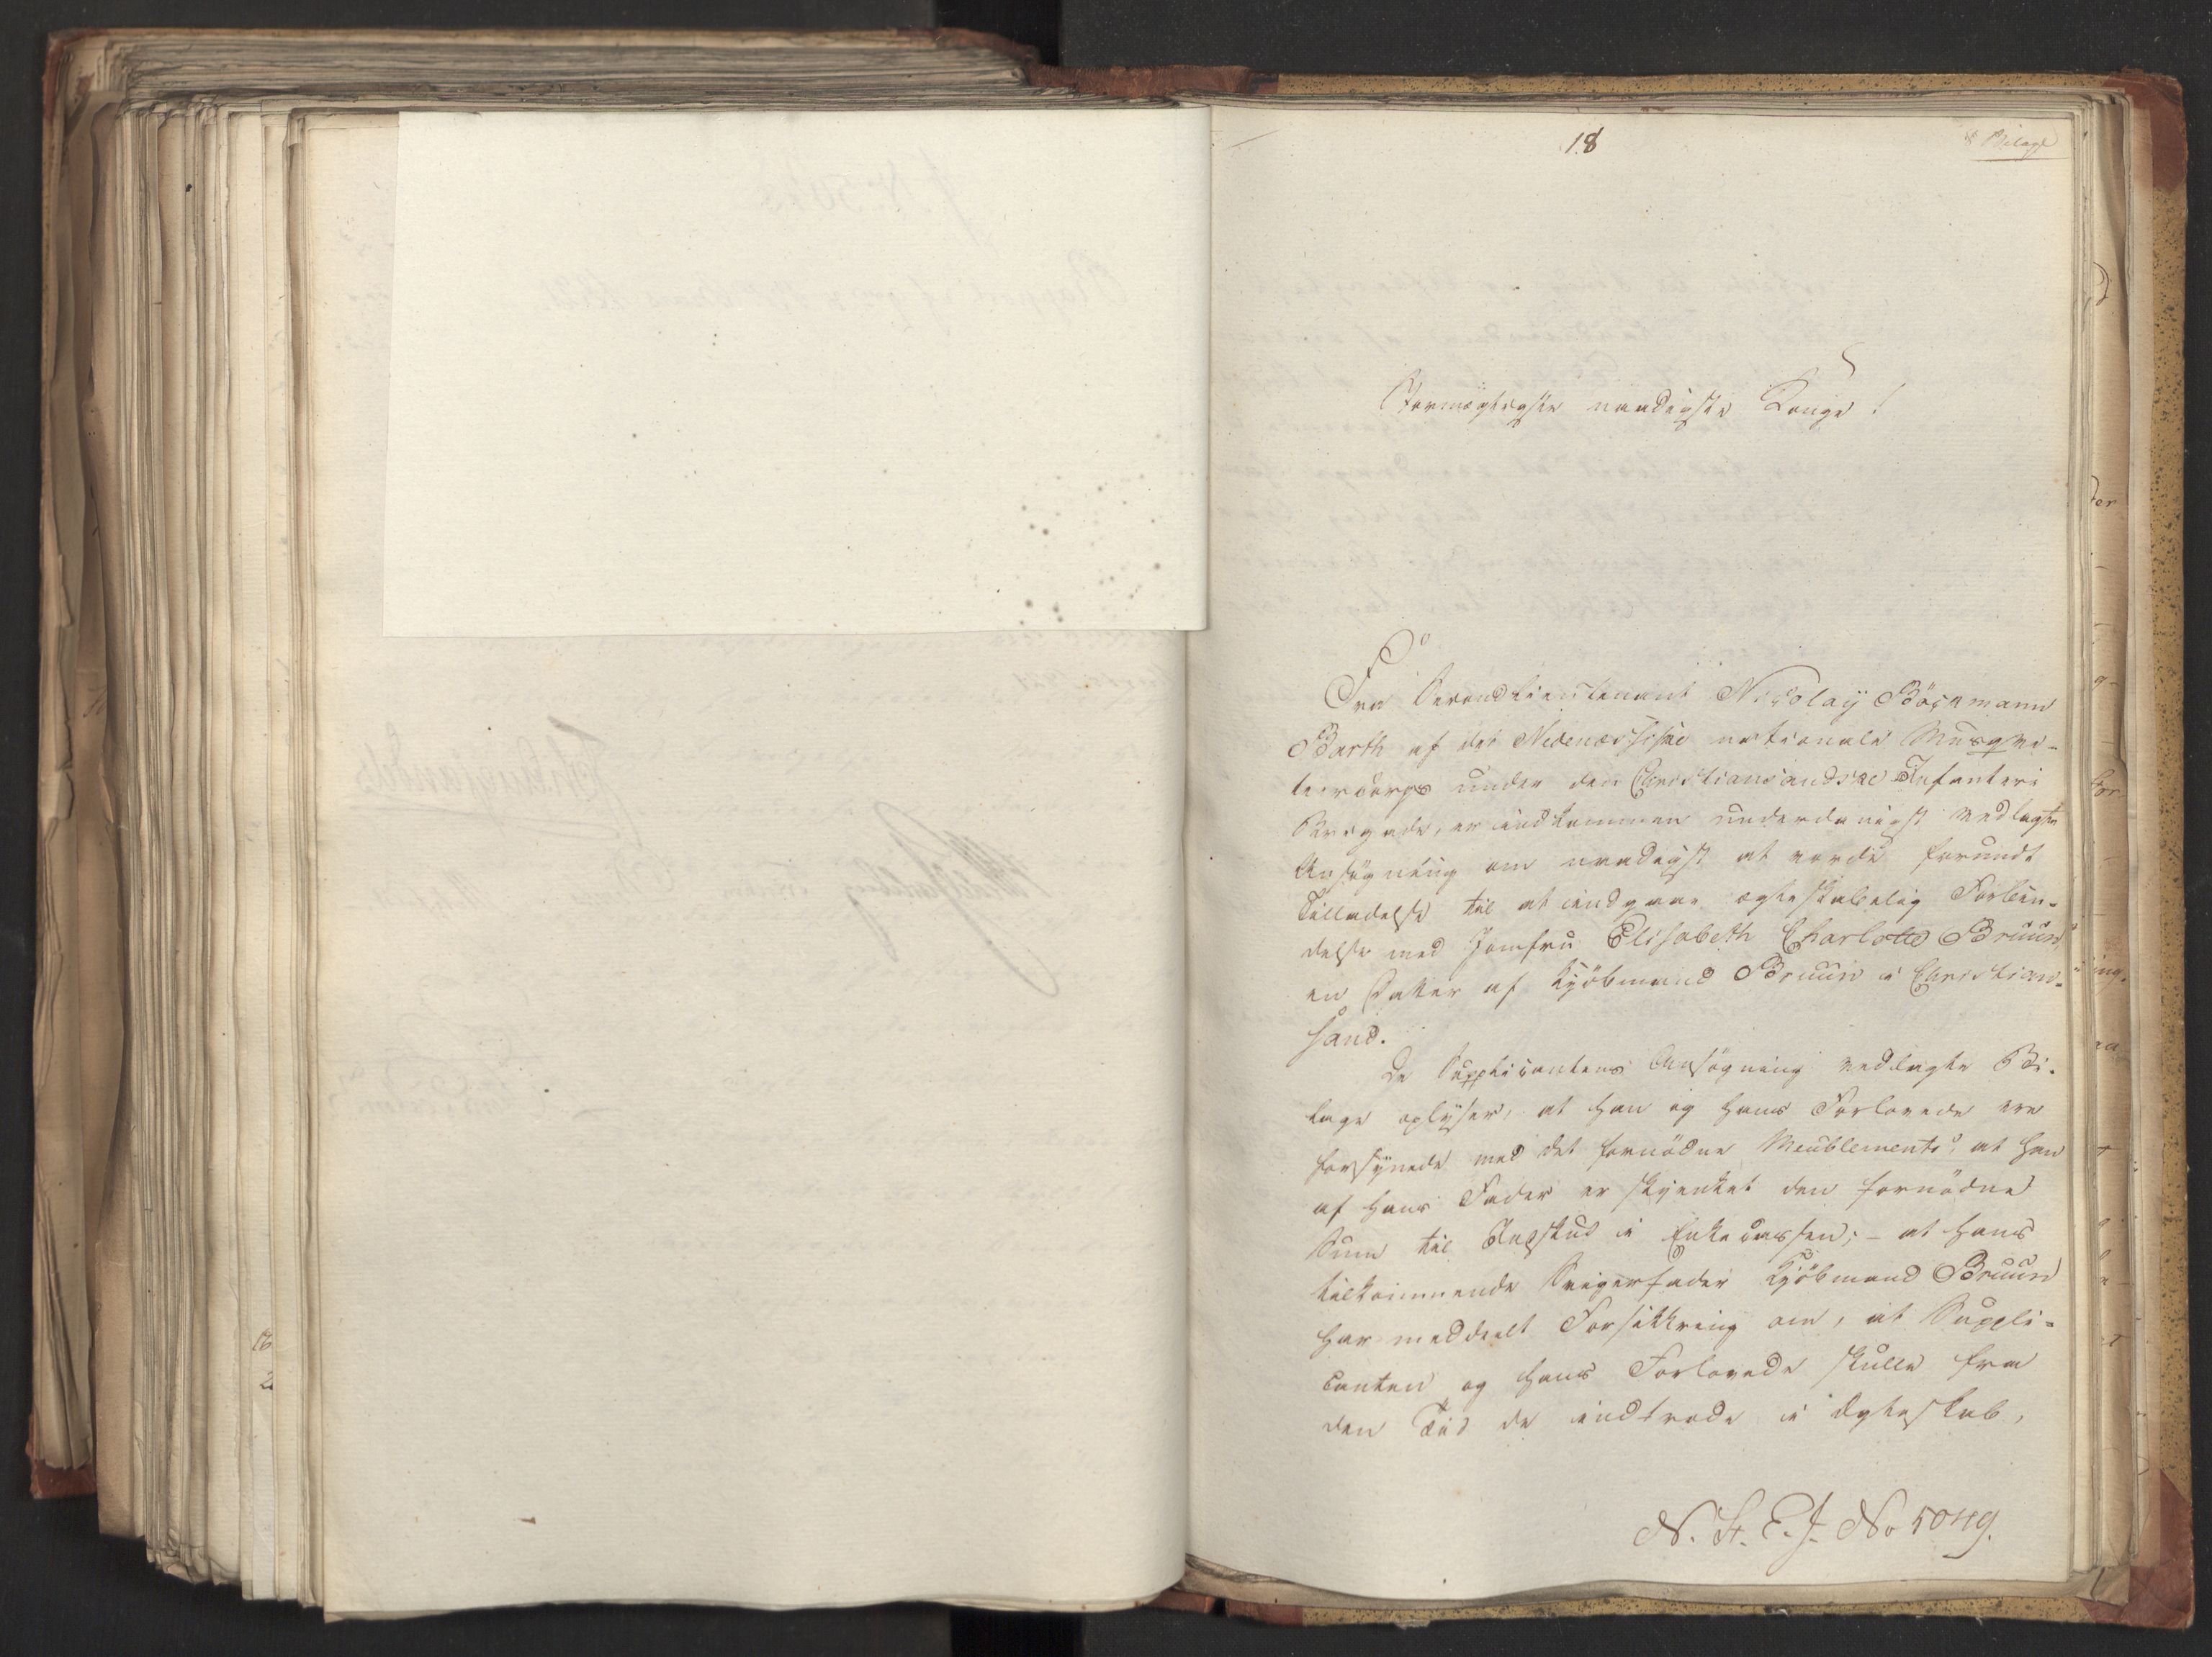 18
8 Bilage
Stormægtigste naadigste Konge!
Fra Secondlieutenant Nicolay Böckmann
Barth af det Nedenæssiske nationale Musqve-
teercorps under den Christiansandske Infanteri
Brigade, er indkommen underdanigst vedlagte
Ansøgning om naadigst at vorde forundt
Tilladelse til at indgaae ægteskabelig Forbin-
delse med Jomfru Elisabeth Charlotte Bruun,
en Datter af Kjöbmand Bruun i Christian-
sand.
De Supplicantens Ansøgning vedlagte Bi-
lage oplyser, at han og hans Forlovede ere
forsynede med det fornödne Meublement; at han
af hans Fader er skjenket den fornödne
Sum til Indskud i Enkecassen; - at hans
tilkommende Svigerfader Kjöbmand Bruun
har meddeelt Forsikkring om, at Suppli-
canten og hans Forlovede skulle fra
den Tiid de indtræde i Ægteskab,
N. St. E. J. No 5049.